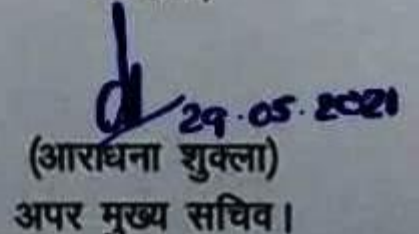 29.05.2021
(आराधना शुक्ला)
अपर मुख्य सचिव।